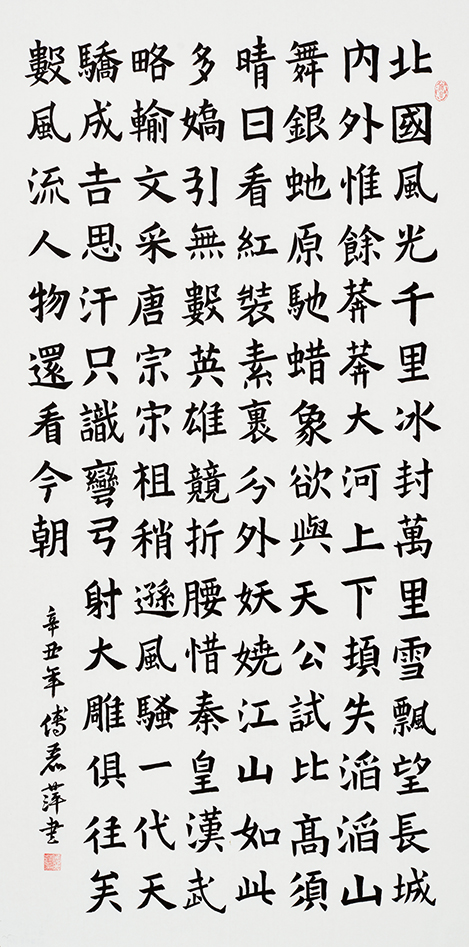 北國風光千里冰封萬里雪飄望長城
内外惟餘莽莽大河上下頓失滔滔山
舞銀虵原馳蜡象欲與天公試比高須
晴日看紅裝素裹分外妖嬈江山如此
多嬌引無數英雄競折腰惜秦皇漢武
略輸文采唐宗宋祖稍遜風騷一代天
驕成吉思汗只識彎弓射大雕俱往矣
數風流人物還看今朝
辛丑年傅萍書